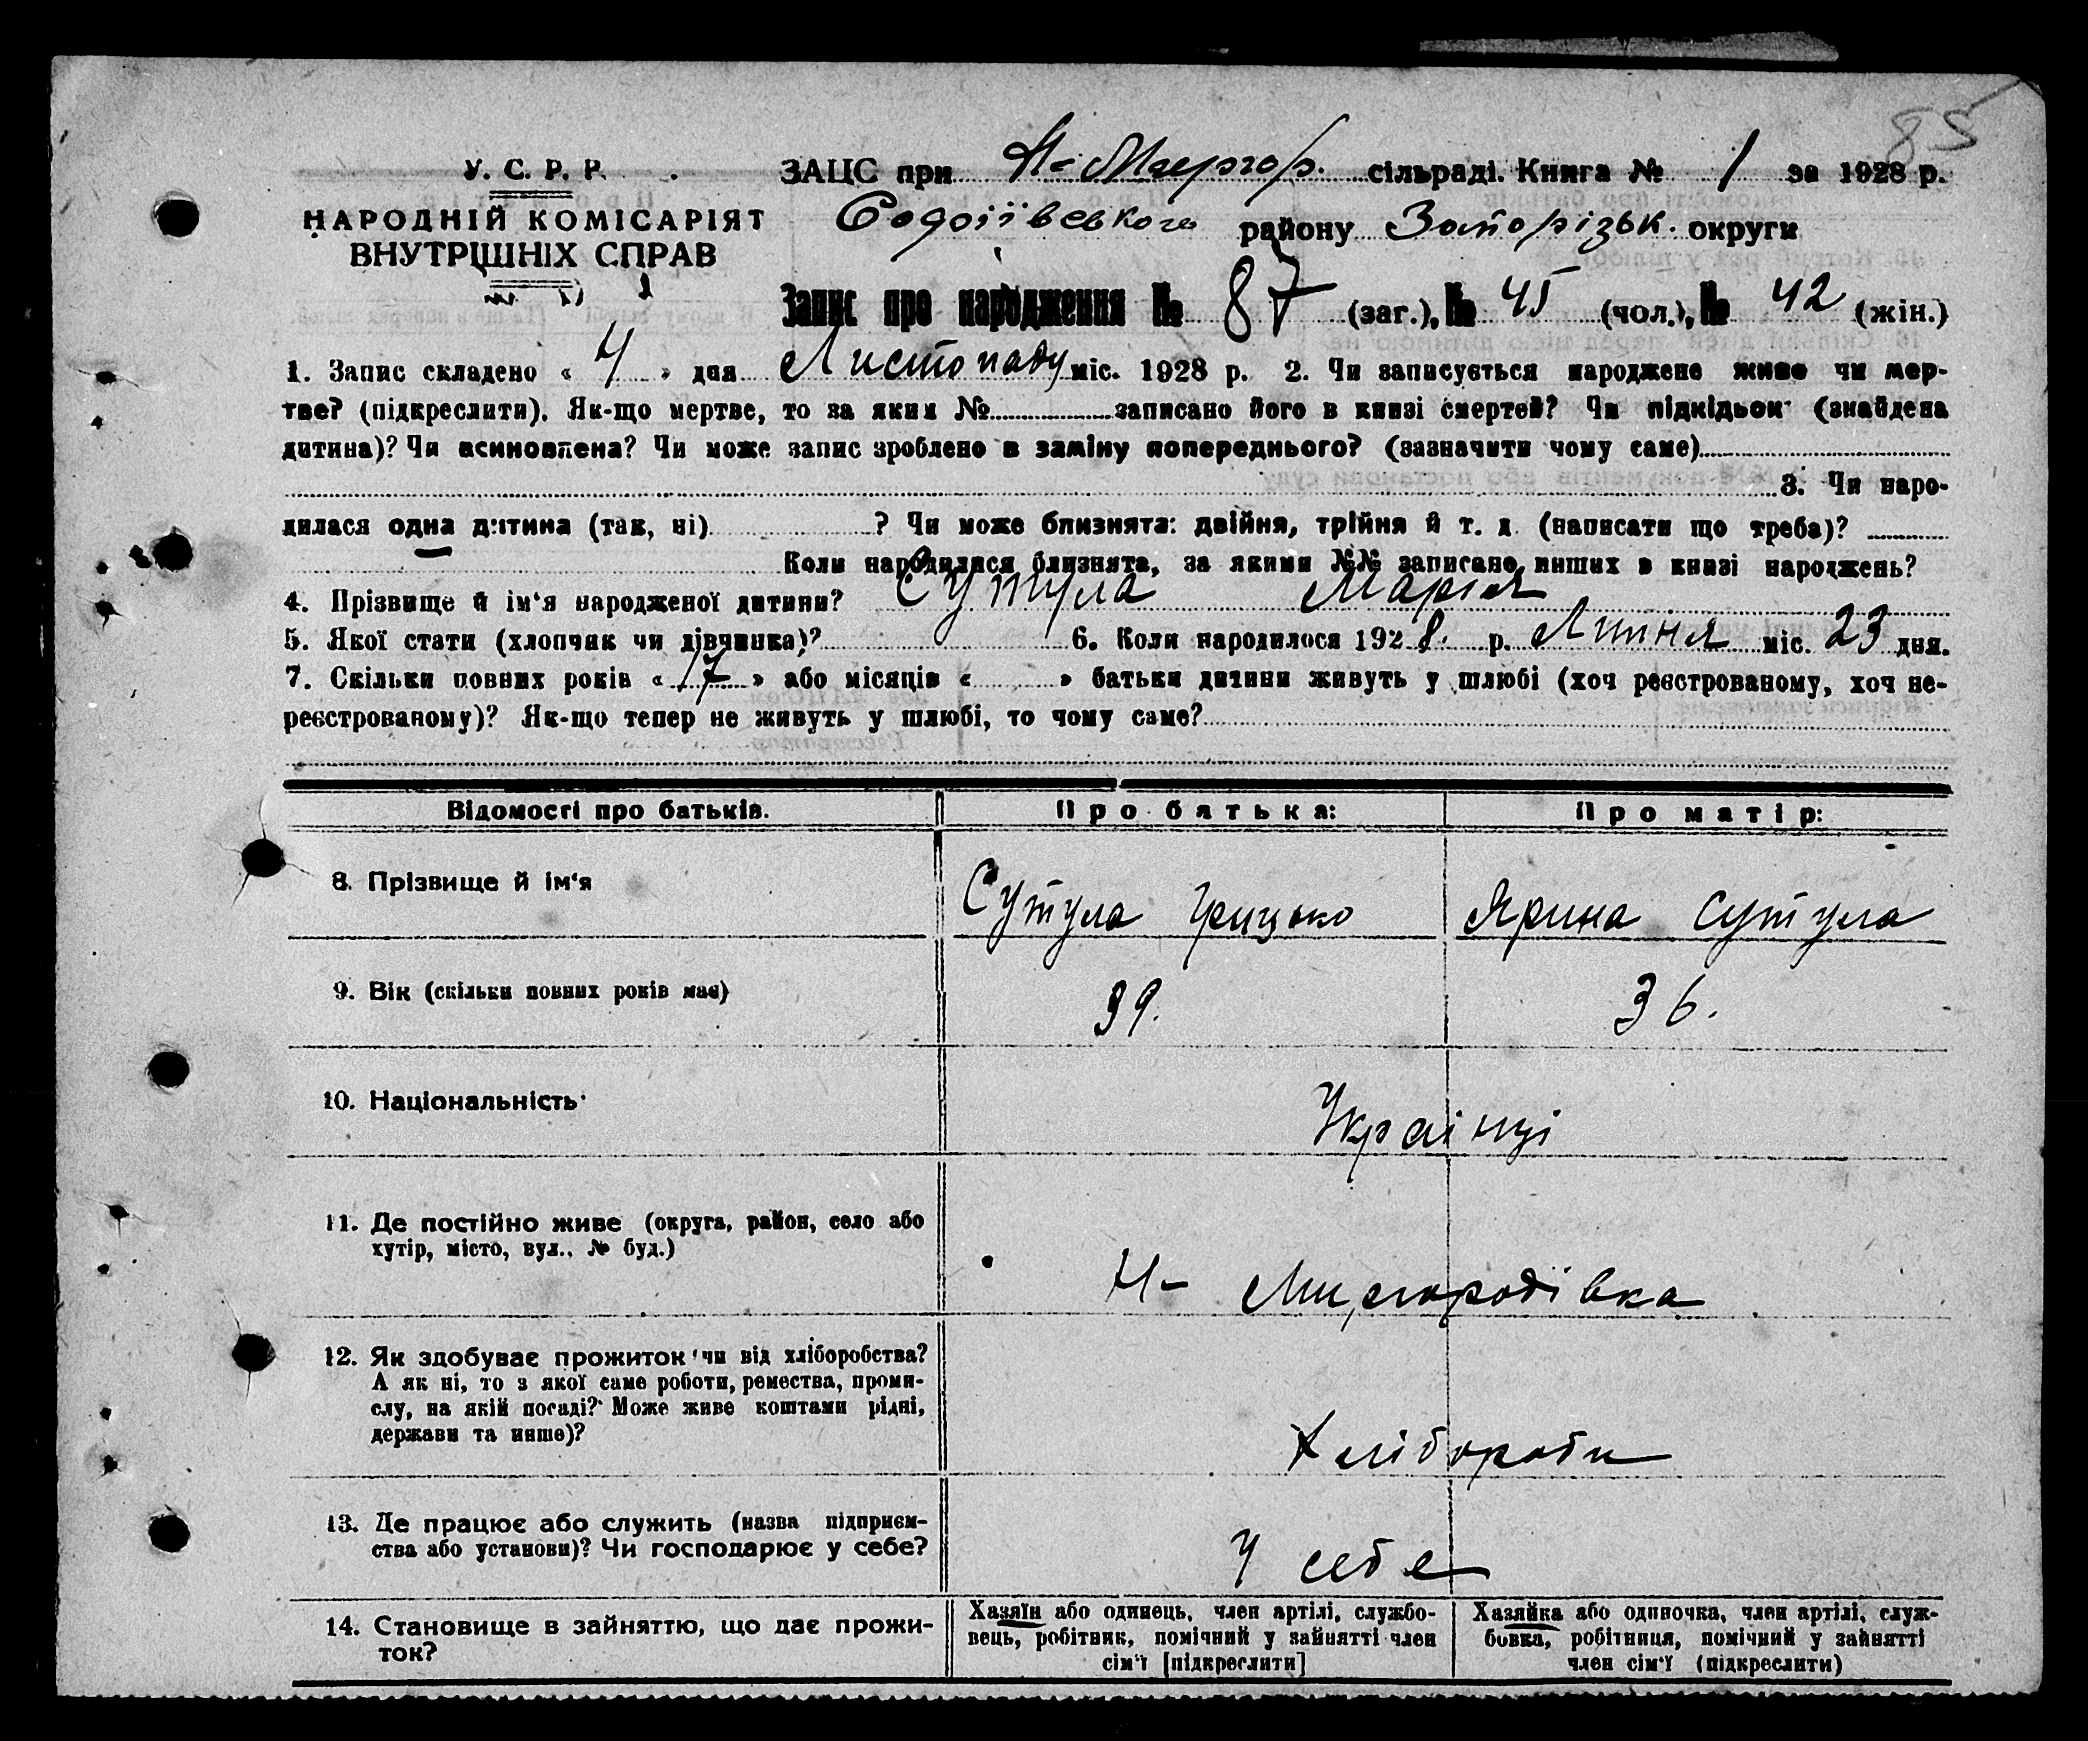 85
У. С. Р. Р.
НАРОДНІЙ КОМІСАРІЯТ
ВНУТРІШНІХ СПРАВ
ЗАЦС при Н-Миргор. сільраді. Книга № 1 за 1928 р.
Софіївського району Запорізьк. округи
Запис про народження № 87 (заг.), № 45 (чол.), № 42 (жін.)
1. Запис складено « 4 » дня Листопаду міс. 1928 р. 2. Чи записується народжене живе чи мер-
тве? (підкреслити). Як-що мертве, то за яким № записано його в книзі смертей? Чи підкідьок (знайдена
дитина)? Чи всиновлена? Чи може запис зроблено в заміну попереднього? (зазначити чому саме)
3. Чи наро-
дилася одна дитина (так, ні) ? Чи може близнята: двійня, трійня й т. д. (написати що треба)?
Коли народилися близнята, за якими №№ записано инших в книзі народжень?
4. Прізвище й ім'я народженої дитини? Сутула Марія
5. Якої стати (хлопчик чи дівчинка)? 6. Коли народилося 1928 р. Липня міс. 23 дня.
7. Скільки повних років « 17 » або місяців « » батьки дитини живуть у шлюбі (хоч реєстрованому, хоч не-
реєстрованому)? Як-що тепер не живуть у шлюбі, то чому саме?
Відомості про батьків. Про батька: Про матір:
8. Прізвище й ім'я Сутула Грицько Ярина Сутула
9. Вік (скільки повних років має) 39. 36.
10. Національність Українці
11. Де постійно живе (округа, район, село або
хутір, місто, вул., № буд.) Н- Миргородівка
12. Як здобуває прожиток чи від хліборобства?
А як ні, то з якої саме роботи, ремества, проми-
слу, на якій посаді? Може живе коштами рідні,
держави та инше)? Хлібороби
13. Де працює або служить (назва підприєм-
ства або установи)? Чи господарює у себе? У себе
14. Становище в зайняттю, що дає прожи-
ток?
Хазяїн або одинець, член артілі, службо-
вець, робітник, помічний у зайнятті член
сім'ї [підкреслити]
Хазяйка або одиночка, член артілі, служ-
бовка, робітниця, помічний у зайнятті
член сім'ї (підкреслити)